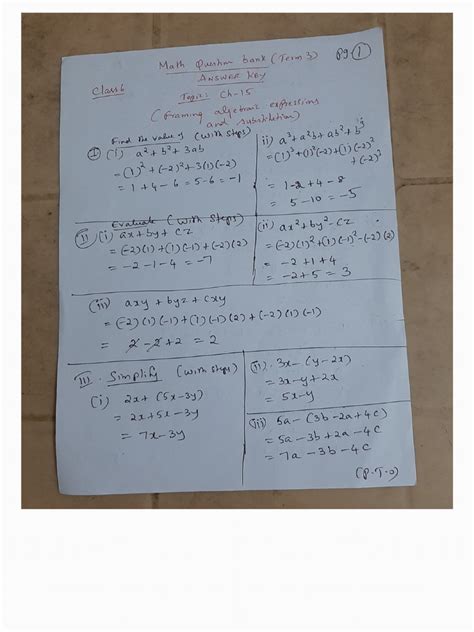 Math Question bank (Term 3) pg ①
Answer key
Class 6
Topic: Ch-15
(Framing algebraic expressions
and substitution)
Find the value of (with steps)
I (i) a² + b² + 3ab
= (1)² + (-2)² + 3(1)(-2)
= 1 + 4 - 6 = 5 - 6 = -1
ii) a³ + a²b + ab² + b³
= (1)³ + (1)²(-2) + (1)(-2)²
+ (-2)³
= 1 - 2 + 4 - 8
= 5 - 10 = -5
Evaluate (with steps)
II (i) ax + by + cz
= (-2)(1) + (1)(-1) + (-2)(2)
= -2 - 1 - 4 = -7
(ii) ax² + by² - cz
= (-2)(1)² + (1)(-1)² - (-2)(2)
= -2 + 1 + 4
= -2 + 5 = 3
(iii) axy + byz + cxy
= (-2)(1)(-1) + (1)(-1)(2) + (-2)(1)(-1)
= 2 - 2 + 2 = 2
III. Simplify (with steps)
(i) 2x + (5x - 3y)
= 2x + 5x - 3y
= 7x - 3y
(ii). 3x - (y - 2x)
= 3x - y + 2x
= 5x - y
(iii) 5a - (3b - 2a + 4c)
= 5a - 3b + 2a - 4c
= 7a - 3b - 4c
(P.T.O)